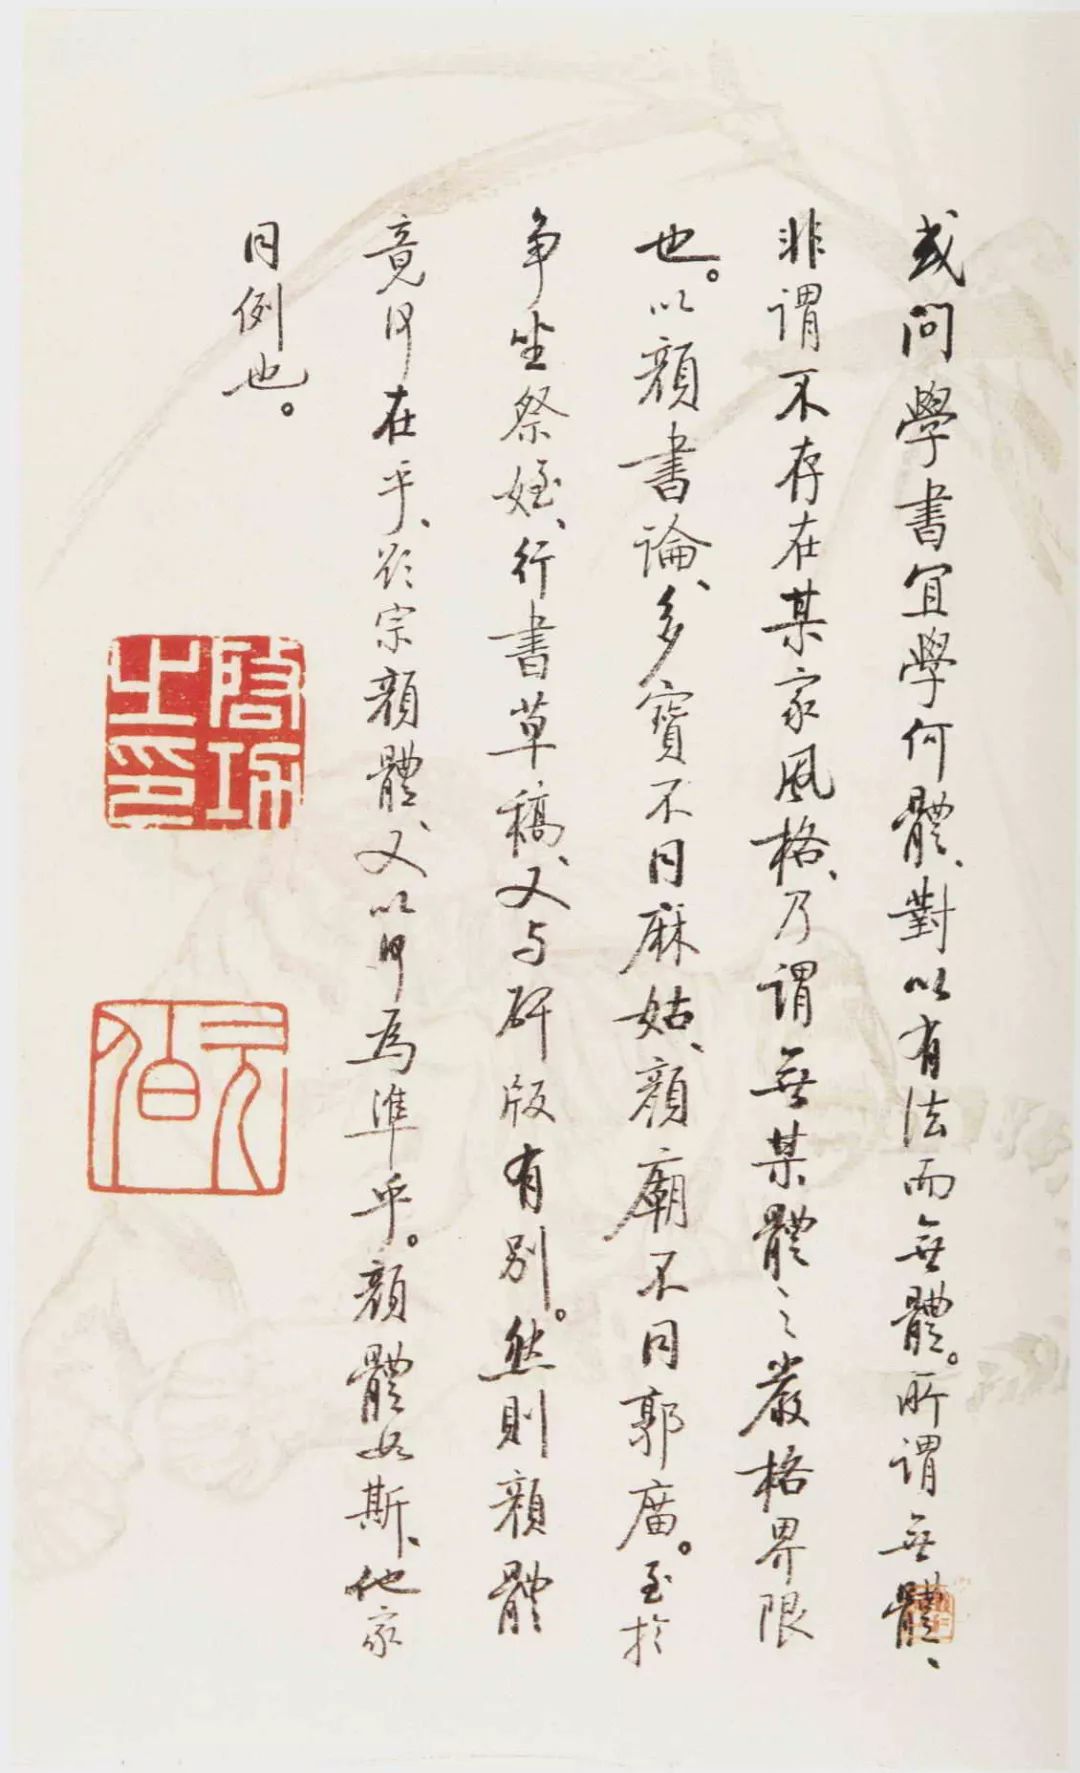 或問學書宜學何體、對以有法而無體。所謂無體、
非謂不存在某家風格、乃謂無某體之嚴格界限
也。以顔書論、多寶不同麻姑、顔廟不同郭廣。至於
争坐祭姪、行書草稿、又与碑版有別。然則顔體
竟何在乎、欲宗顔體、又以何為準乎。顔體如斯、他家
同例也。
啓功之印
元白